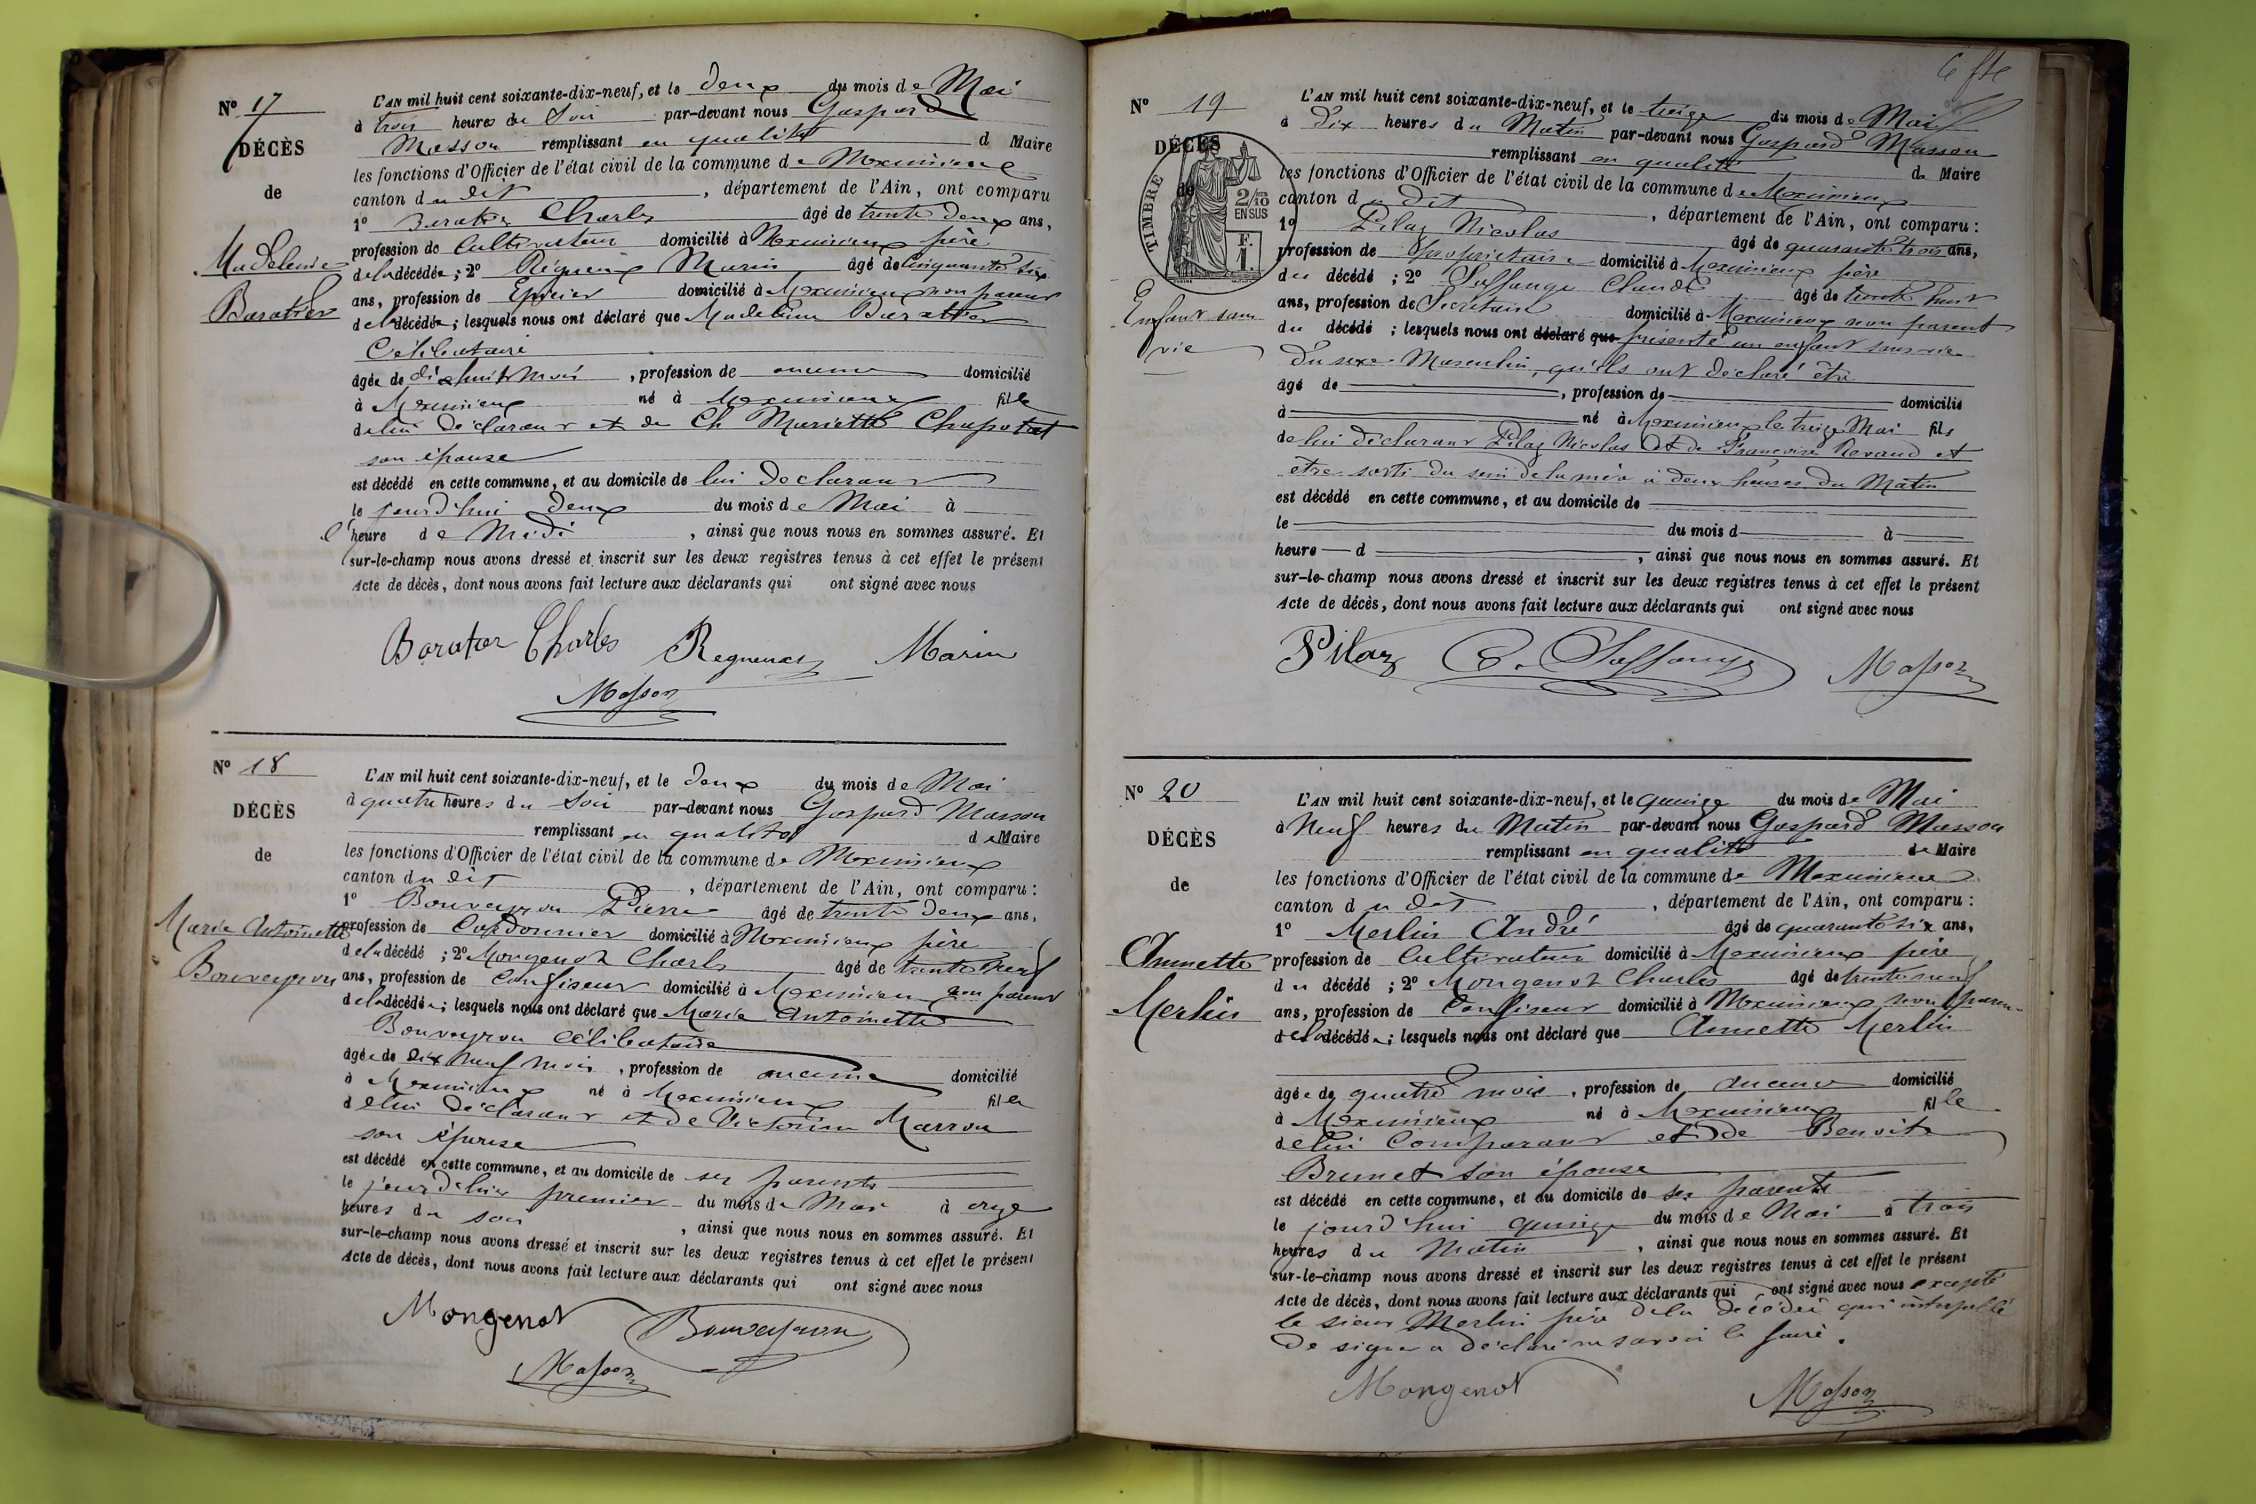 N° 17
DÉCÈS
de
Madeleine
Baratier
L'AN mil huit cent soixante-dix-neuf, et le deux du mois de Mai
à trois heures du Soir par-devant nous Gaspard
Masson remplissant en qualité d Maire
les fonctions d'Officier de l'état civil de la commune de Meximieux
canton du dit , département de l'Ain, ont comparu
1° Baratier Charles âgé de trente deux ans,
profession de Cultivateur domicilié à Meximieux père
de la décédée ; 2° Marin âgé de Cinquante six
ans, profession de Epicier domicilié à Meximieux non parent
de la décédée ; lesquels nous ont déclaré que Madeleine Baratier
Célibataire
âgée de dix huit Mois , profession de aucune domicilié
à Meximieux né à Meximieux fille
de lui déclarant et de Ch Mariette Chapotat
son épouse
est décédé en cette commune, et au domicile de lui déclarant
le jourd'hui deux du mois de Mai à
l'heure de Midi , ainsi que nous nous en sommes assuré. Et
sur-le-champ nous avons dressé et inscrit sur les deux registres tenus à cet effet le présent
Acte de décès, dont nous avons fait lecture aux déclarants qui ont signé avec nous
Baratier Charles Marin
Masson
N° 18
DÉCÈS
de
Marie Antoinette
Bouveyron
L'AN mil huit cent soixante-dix-neuf, et le deux du mois de Mai
à quatre heures du Soir par-devant nous Gaspard Masson
remplissant en qualité de Maire
les fonctions d'Officier de l'état civil de la commune de Meximieux
canton du dit , département de l'Ain, ont comparu :
1° Bouveyron Pierre âgé de trente deux ans,
profession de Cordonnier domicilié à Meximieux père
de la décédé ; 2° Mongenot Charles âgé de trente neuf
ans, profession de Confiseur domicilié à Meximieux non parent
de la décédée ; lesquels nous ont déclaré que Marie Antoinette
Bouveyron célibataire
âgée de dix neuf mois , profession de aucune domicilié
à Meximieux né à Meximieux fille
de lui déclarant et de Victorine Marron
son épouse
est décédé en cette commune, et au domicile de ses parents
le jour d'hier premier du mois de Mai à onze
heures du soir , ainsi que nous nous en sommes assuré. Et
sur-le-champ nous avons dressé et inscrit sur les deux registres tenus à cet effet le présent
Acte de décès, dont nous avons fait lecture aux déclarants qui ont signé avec nous
Mongenot Bouveyron
Masson
N° 19
DÉCÈS
de
TIMBRE
2/10
EN SUS
F.
1.
Enfant sans
vie
L'AN mil huit cent soixante-dix-neuf, et le treize du mois de Mai
à Dix heures du Matin par-devant nous Gaspard Masson
remplissant en qualité de Maire
les fonctions d'Officier de l'état civil de la commune de Meximieux
canton du dit , département de l'Ain, ont comparu :
1° Pilaz Nicolas âgé de quarante trois ans,
profession de Propriétaire domicilié à Meximieux père
du décédé ; 2° Saffange Claude âgé de trente huit
ans, profession de Secrétaire domicilié à Meximieux non parent
du décédé ; lesquels nous ont déclaré que présenté un enfant sans vie
du sexe Masculin, qu'ils ont déclaré être
âgé de , profession de domicilié
à né à Meximieux le treize Mai fils
de lui déclarant Pilaz Nicolas et de Françoise Revaud et
être sorti du sein de la mère à deux heures du Matin
est décédé en cette commune, et au domicile de
le du mois d à
heure d , ainsi que nous nous en sommes assuré. Et
sur-le-champ nous avons dressé et inscrit sur les deux registres tenus à cet effet le présent
Acte de décès, dont nous avons fait lecture aux déclarants qui ont signé avec nous
Pilaz C. Saffange Masson
N° 20
DÉCÈS
de
Annette
Merlin
L'AN mil huit cent soixante-dix-neuf, et le quinze du mois de Mai
à Neuf heures du Matin par-devant nous Gaspard Masson
remplissant en qualité de Maire
les fonctions d'Officier de l'état civil de la commune de Meximieux
canton du dit , département de l'Ain, ont comparu :
1° Merlin André âgé de quarante six ans,
profession de Cultivateur domicilié à Meximieux père
du décédé ; 2° Mongenot Charles âgé de trente neuf
ans, profession de Confiseur domicilié à Meximieux non parent
de la décédée ; lesquels nous ont déclaré que Annette Merlin
âgée de quatre mois , profession de aucune domicilié
à Meximieux né à Meximieux fille
de lui Comparant et de Benoite
Brunet son épouse
est décédé en cette commune, et au domicile de ses parents
le jourd'hui quinze du mois de Mai à trois
heures du Matin , ainsi que nous nous en sommes assuré. Et
sur-le-champ nous avons dressé et inscrit sur les deux registres tenus à cet effet le présent
Acte de décès, dont nous avons fait lecture aux déclarants qui ont signé avec nous excepté
le sieur Merlin père de la décédée qui interpellé
de signer a déclaré ne savoir le faire.
Mongenot Masson